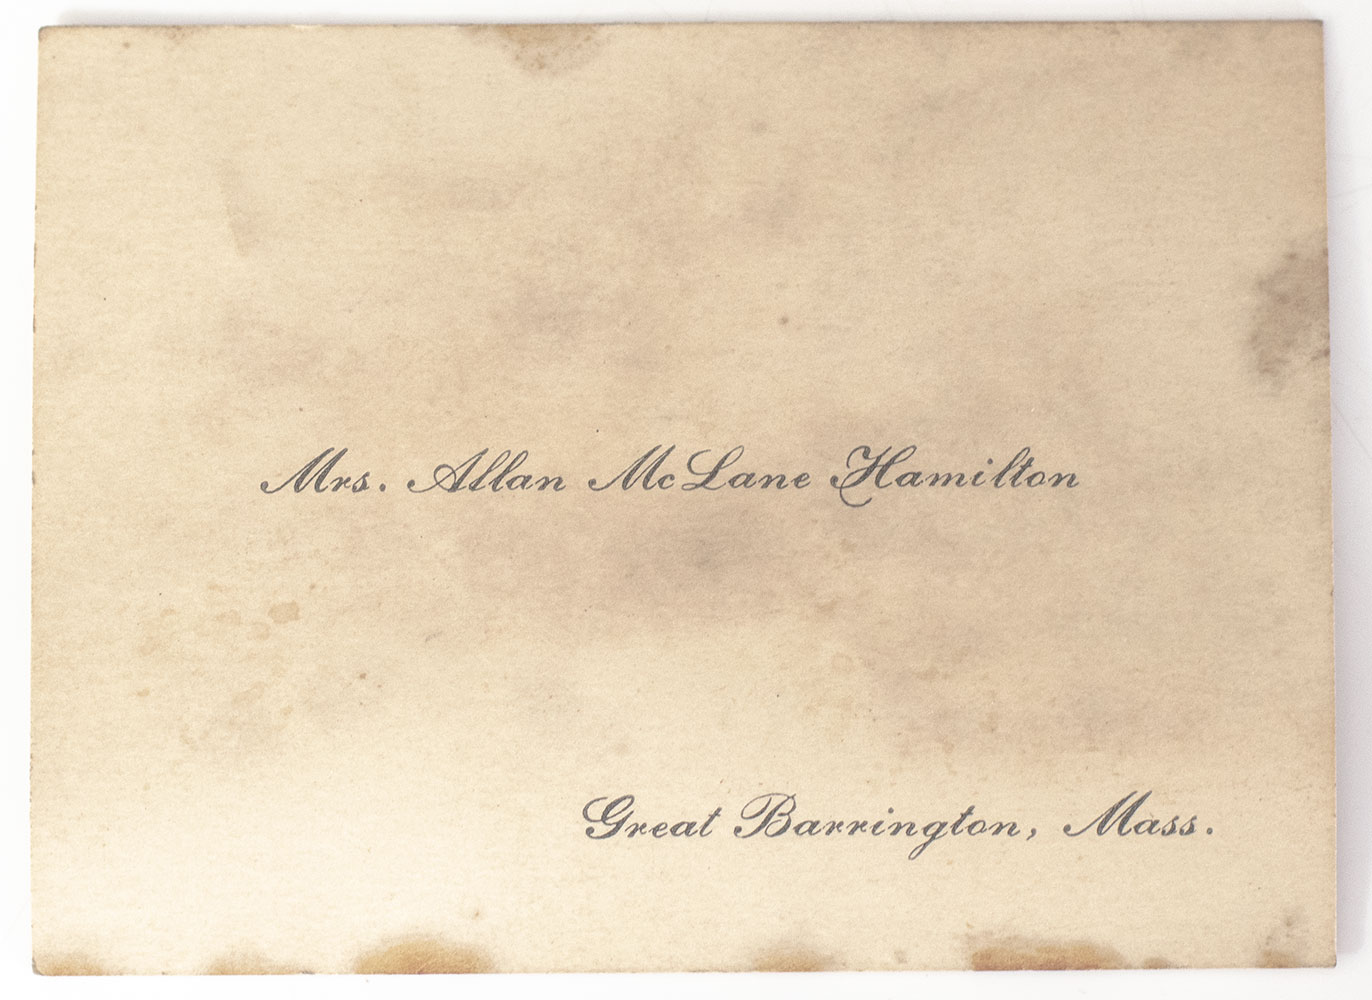 Mrs. Allan McLane Hamilton
Great Barrington, Mass.